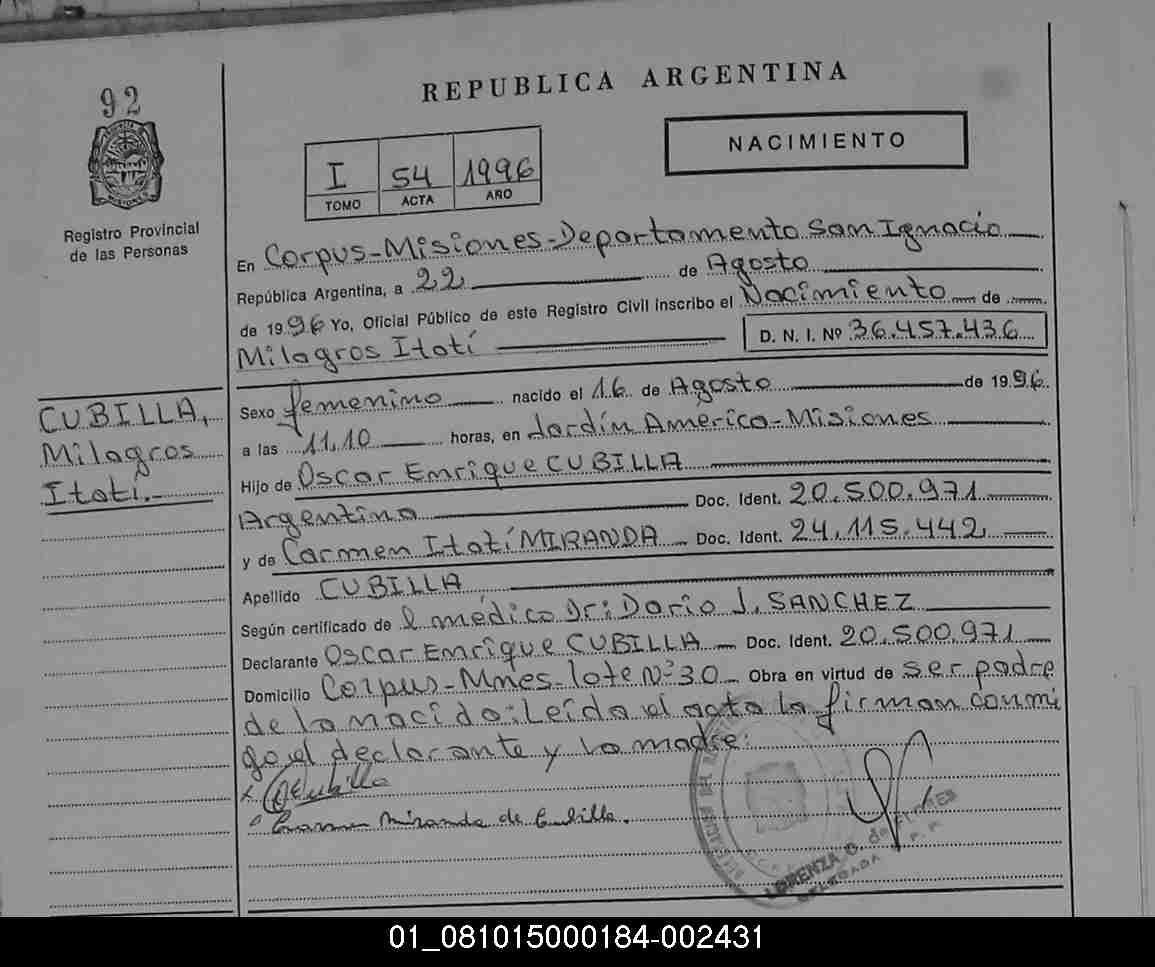 92
REPUBLICA ARGENTINA
NACIMIENTO
I 54 1996
TOMO ACTA AÑO
Registro Provincial
de las Personas
En Corpus-Misiones-Departamento San Ignacio
República Argentina, a 22 de Agosto
de 1996 Yo, Oficial Público de este Registro Civil inscribo el Nacimiento de
Milagros Itatí
D. N. I. Nº 36.457.436
CUBILLA,
Milagros
Itatí.-
Sexo femenino nacido el 16 de Agosto de 1996
a las 11,10 horas, en Jardín América-Misiones
Hijo de Oscar Enrique CUBILLA
Argentino Doc. Ident. 20.500.971
y de Carmen Itatí MIRANDA Doc. Ident. 24.115.442
Apellido CUBILLA
Según certificado de el médico Dr: Dario J. SANCHEZ
Declarante Oscar Enrique CUBILLA Doc. Ident. 20.500.971
Domicilio Corpus-Mnes-lote Nº30 Obra en virtud de ser padre
de la nacido: Leída el acta la firman conmi
go el declarante y la madre:
OECubilla
Carmen Miranda de Cubilla.
LORENZA G. de
DELEGADA
01_081015000184-002431